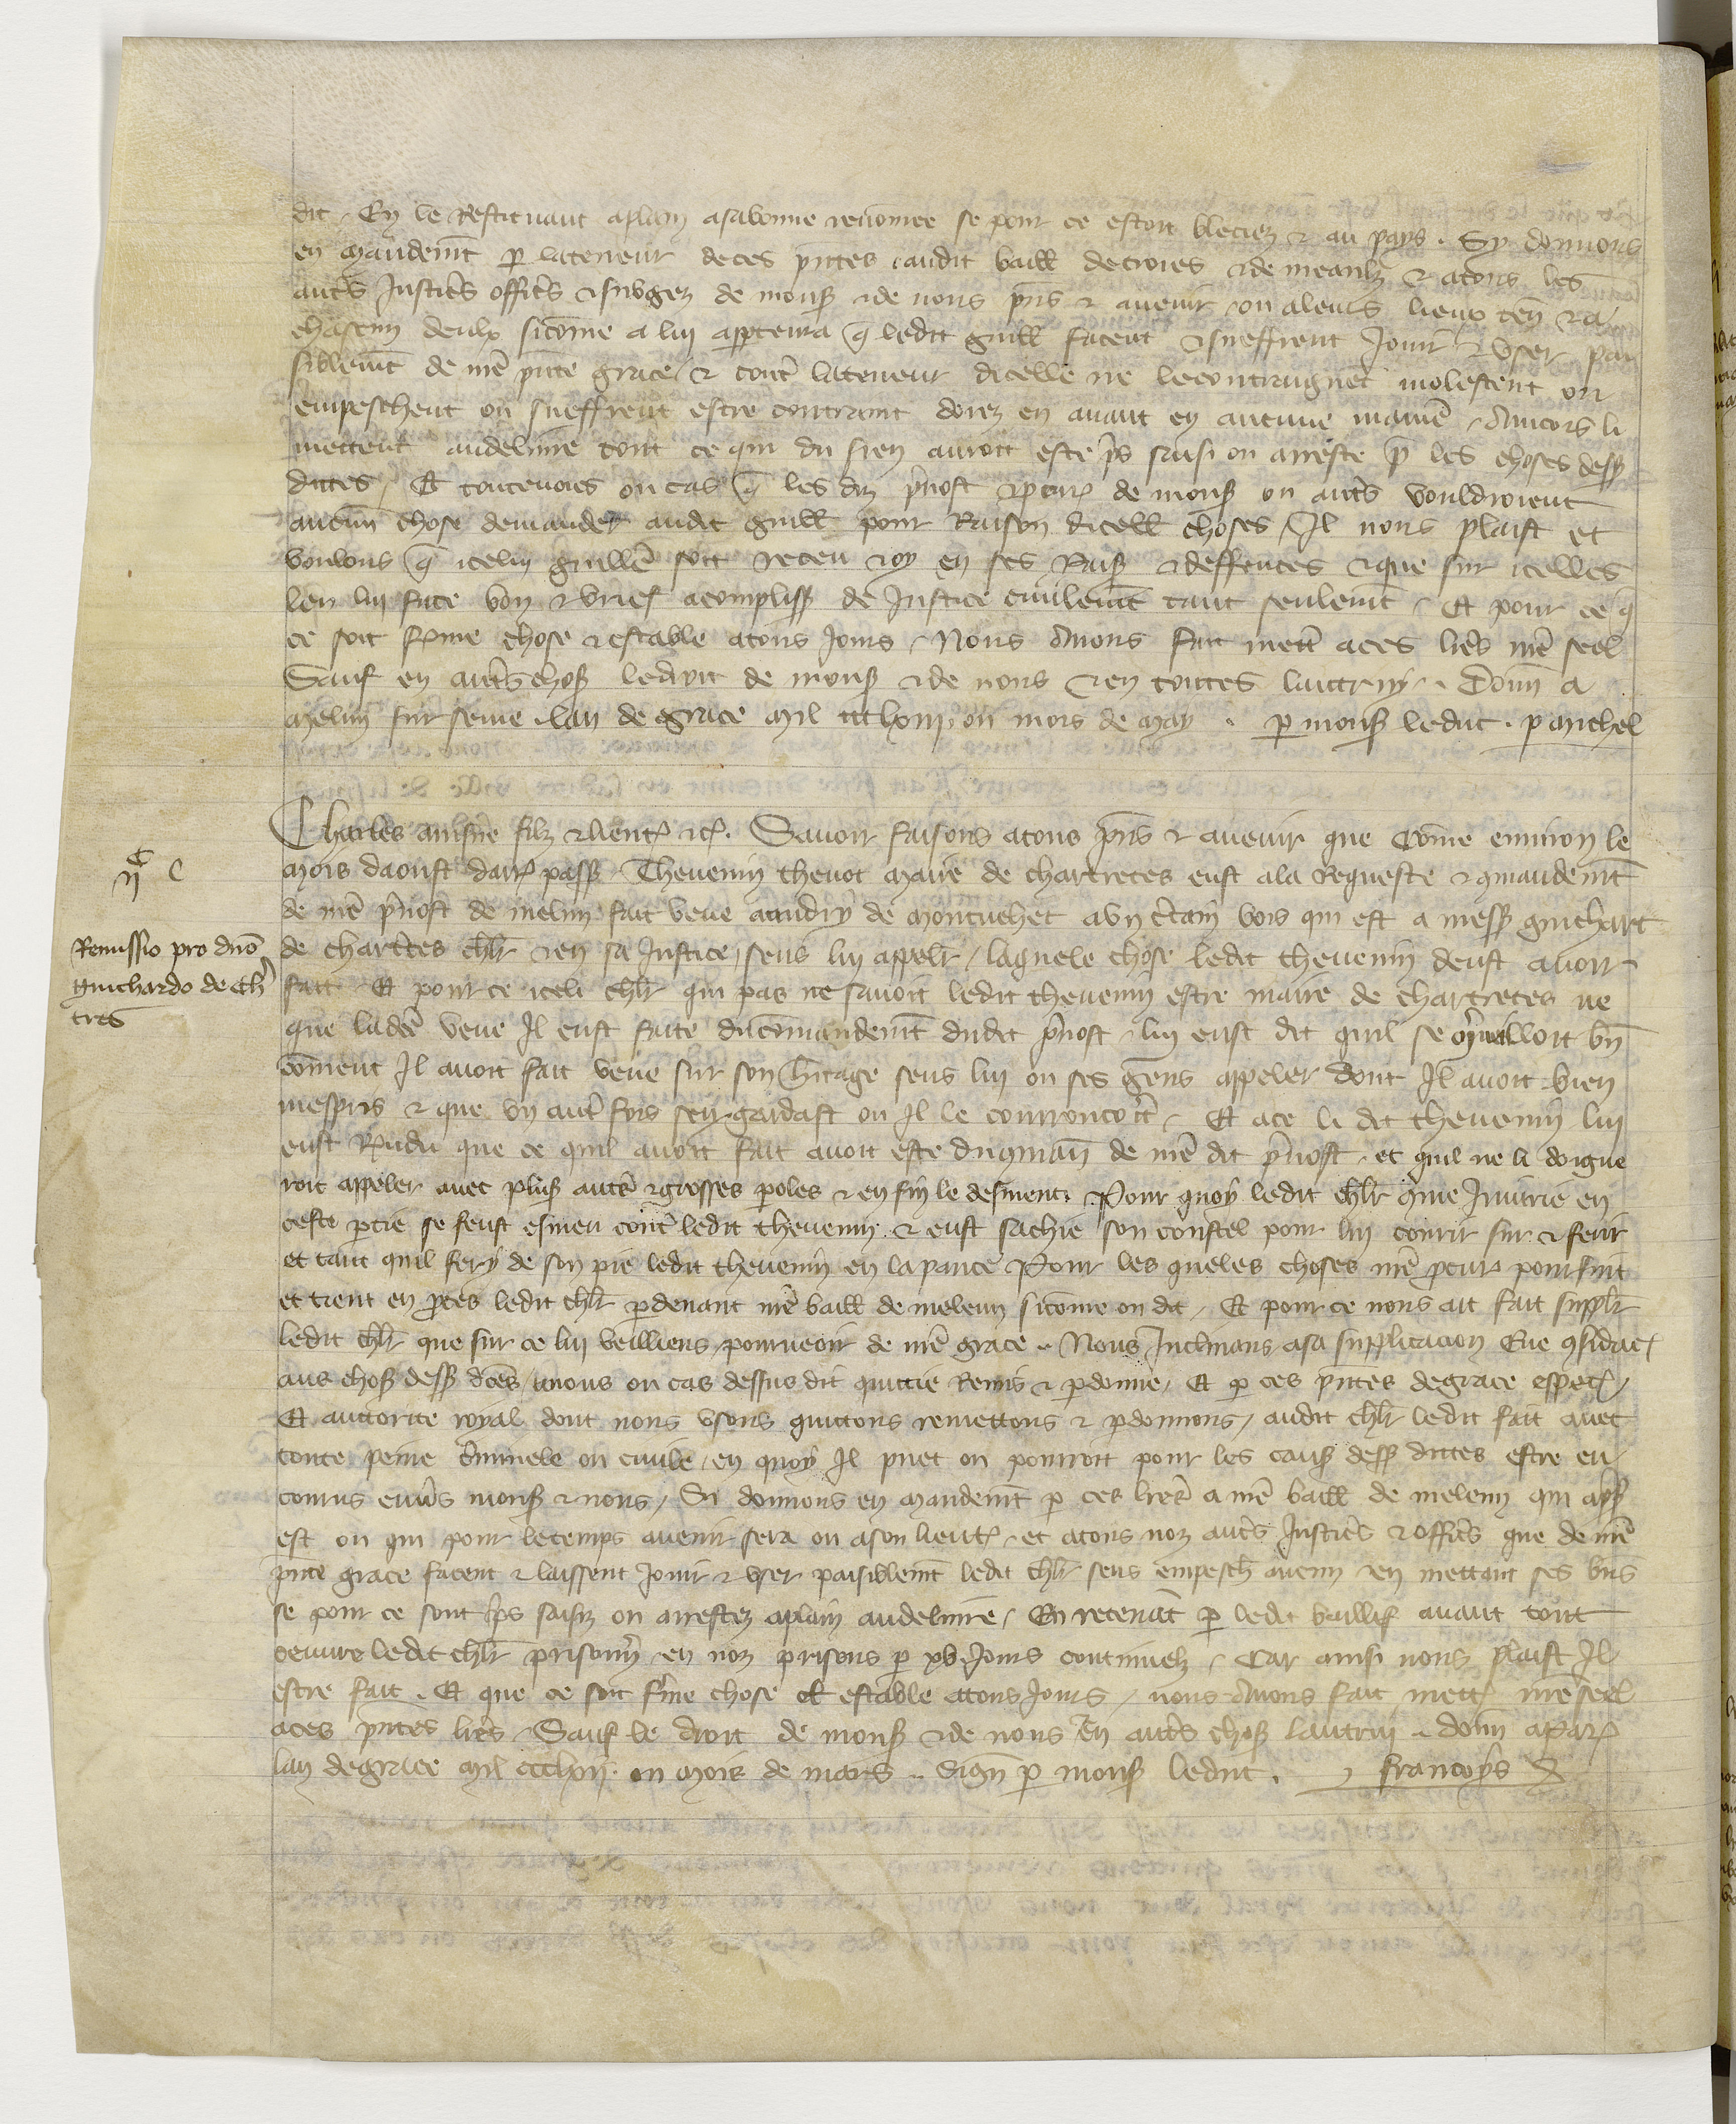 dit. En le restituant aplain asabonne renomee se pour ce estoit bleciez & au pays. Sy donnons
en mandemt p lateneur de ces pntes audit baill de troies & de meaulx & atous les
autrs Justicrs officrs & subgez de mons & de nous pns & avenir ou aleurs lieux ten & a
chascun deulx sicome a lui appartenra q ledit guill facent & sueffrent Jouir & user pai
siblemt de nre pnte grace & contr lateneur dicelle ne lecontraignet molestent ou
empeschent ou sueffrent estre contraint dorez en avant en aucune maniē Aincois li
mettent audelivre tout ce qui du sien auroit este pris saisi ou arreste p les choses dess
dictes, Et toutevoies ou cas q les diz pvost & pcur de mons ou autrs vouldroient
aucun chose demander audit guill pour Raison dicell choses, Il nous plaist et
voulons q icelui guillē soit receu & oy en ses Rais & deffences & que sur icelles
len lui face bon & brief acompliss de Justice civilemt tant seulemt. Et pour ce q
ce soit ferme chose & estable atous Jours. Nous Avons fait mettr aces lrēs nrē seel
Sauf en autrs chos ledroit de mons & de nous & en toutes lautruy. Donn a
Melun sur seine lan de grace Mil ccclviii ou mois de may. p mons leduc. p michel
Charles ainsne filz & lieut &c. Savoir faisons atous pns & avenir que Come environ le
mois daoust darr pass Thevenin thenot maire de chartretes eust ala Requeste & comandemt
de nrē pvost de melun fait veue aandry de montuchet avn certain bois qui est a mess guichart
Remissio pro dno
guichardo de Char
tres
de chartres chlr & en sa Justice, sens lui appeler, laquele chose ledit thevenin deust avoir
fait. Et pour ce iceli chlr qui pas ne savoit ledit thevenin estre maire de chartretes ne
que ladce veue Il eust faite ducomandemt dudit pvost, lui eust dit quil se mveilloit bn
coment Il avoit fait veue sur son hitage sens lui ou ses gens appeler dont Il avoit bien
mespris & que vn autr fois sen gardast ou Il le courroucoit. Et ace li dit thevenin lui
eust Rndu que ce quil avoit fait avoit este ducomān de nrē dit pvost. et quil ne li doigne
roit appeler avec plus autrs & grosses poles & en fin le desmenti. Pour quoy ledit chlr come Iniurie en
ceste ptie se feust esmeu contr ledit thevenin & eust sachie son coustel pour lui courir sur & ferir
et tant quil fery de son pie ledit thevenin en lapance Pour les queles choses nrē pcur poursuit
et tient en pces ledit chlr pdevant nrē baill de meleun sicome on dit. Et pour ce nous ait fait suppler
ledit chlr que sur ce lui veilliens pourveoir de nrē grace. Nous Inclinans asa supplicacion Eue considac
aus chos dess dces, avons ou cas dessus dit quittie Remis & pdonne, Et p ces pntes degrace especl
Et auctorite royal dont nous usons quittons remettons & pdonnons, audit chlr ledit fait avec
toute peine criminele ou civile, en quoy Il puet ou pourroit pour les caus dess dictes estre en
courus envrs mons & nous, Si donnons en mandemt p ces lrēs a nrē baill de meleun qui apns
est ou qui pour letemps avenir sera ou ason lieut. et atous noz autrs Justicrs & officrs que de nrē
pnte grace facent & laissent Jouir & user paisiblemt ledit chlr sens empesch aucun & en mettant ses bns
se pour ce sont pris saisiz ou arrestez aplain audelivre, En retenāt p ledit baillif avant tout
oeuvre ledit chlr prisonnr en noz prisons p xv Jours continuelz. Car ainsi nous plaist Il
estre fait. Et que ce soit ferme chose et estable atousJours, nous Avons fait mettr nrē seel
aces pntes lrēs. Sauf le droit de mons & de nous en autrs chos lautrui. donn aPar
lan degrace Mil ccclvii ou mois de mars. Sign p mons leduc. francoys